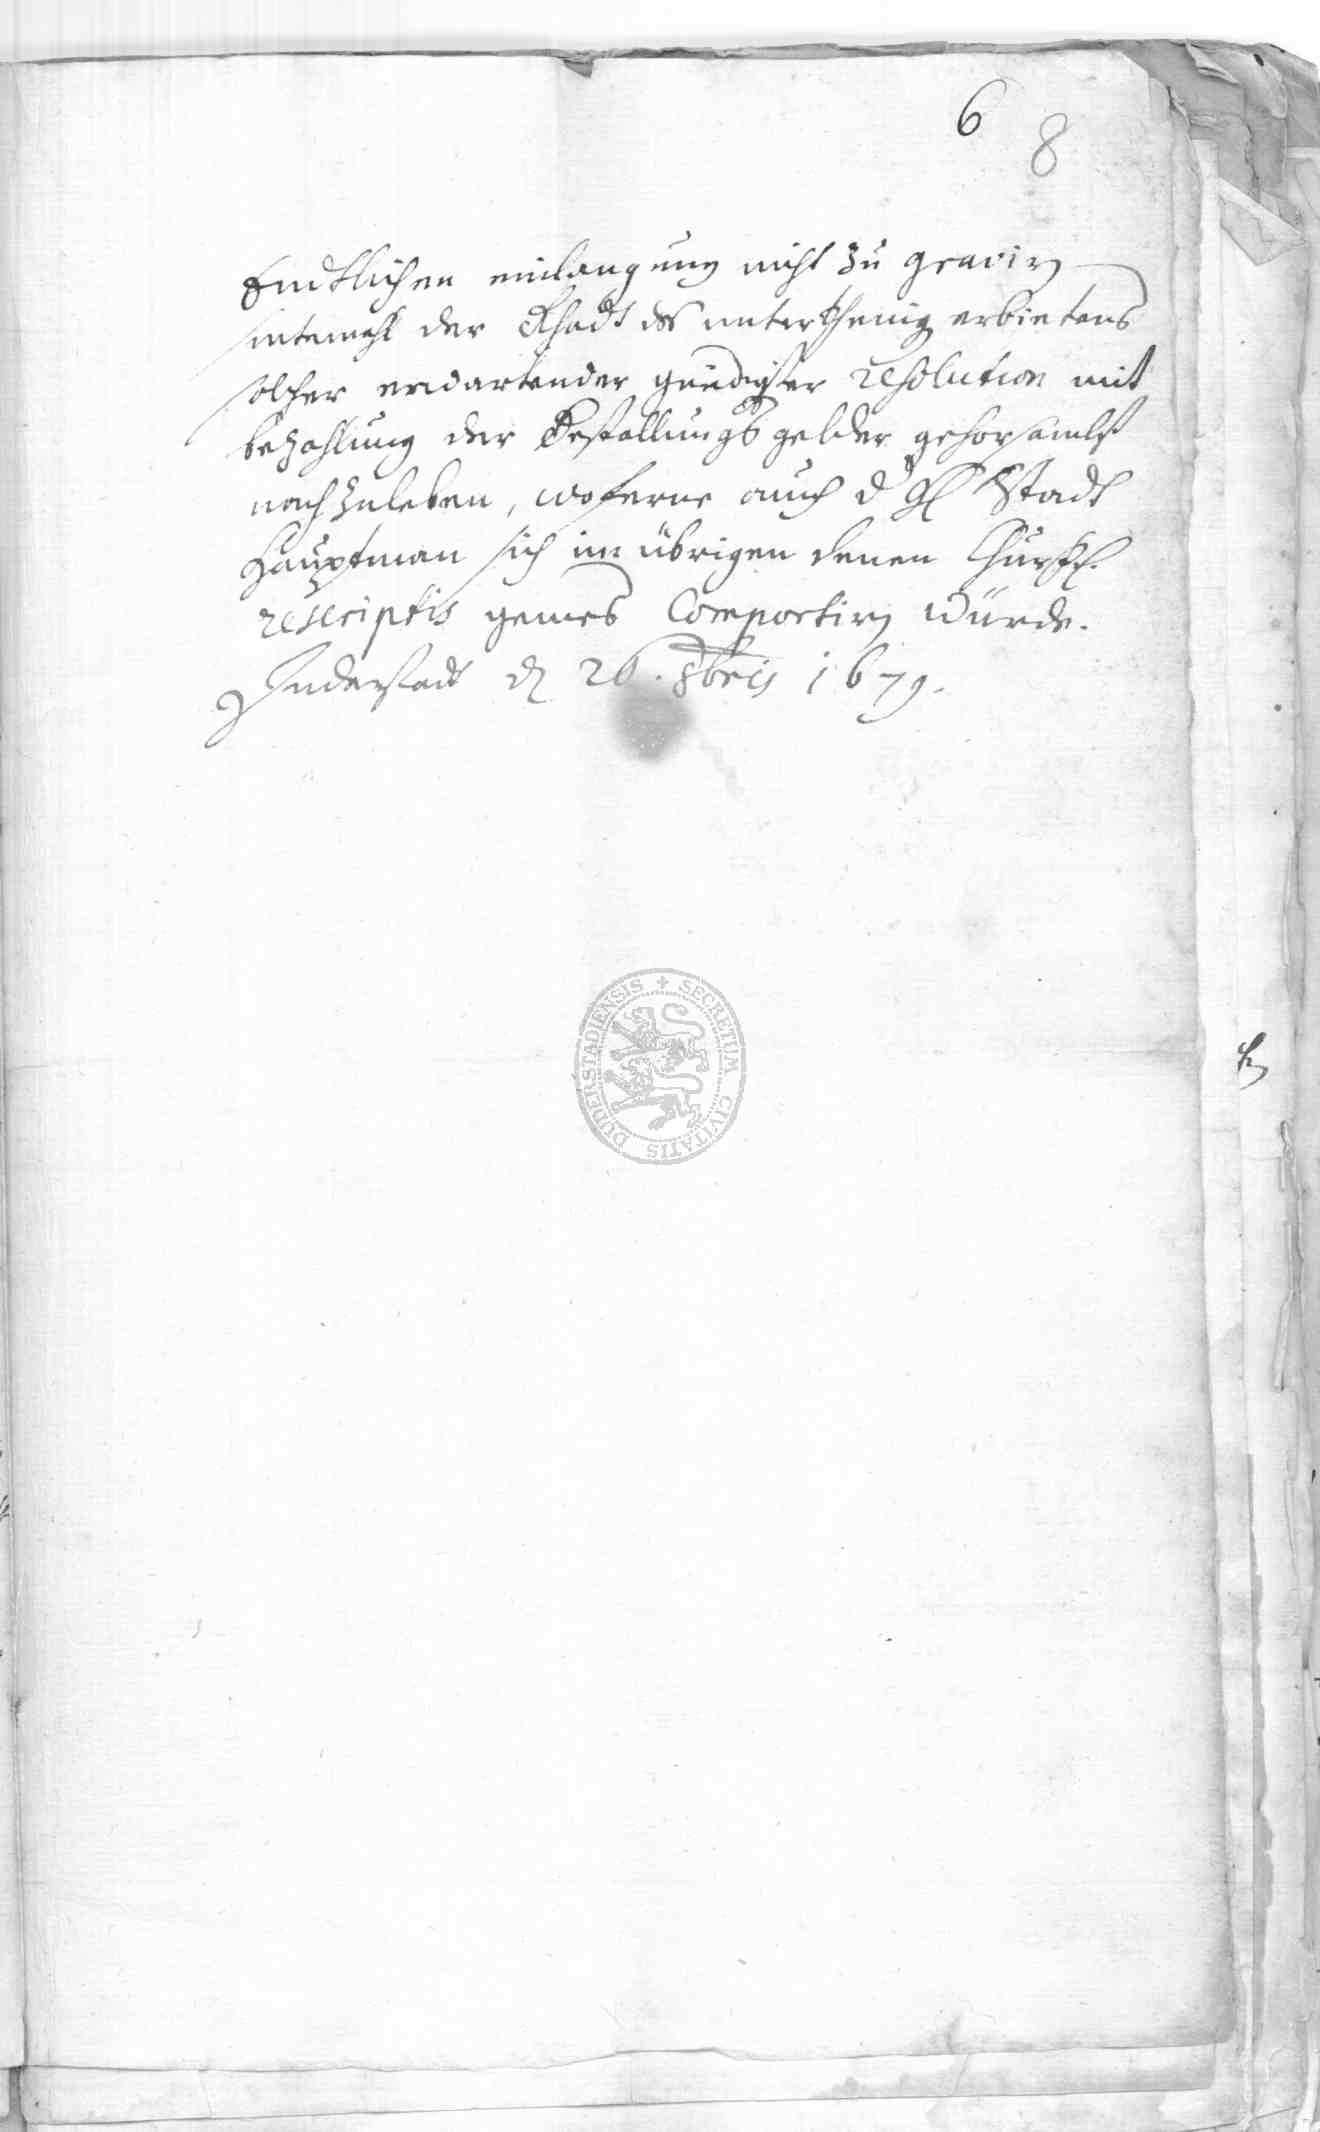 6
8
Endtlichen einlangung nicht zu gravirn
sintemahl der Rhadt des unterthenig erbietens
solcher erwartender gnädigster resolution mit
bezahlung der Bestallungs gelder gehorsambst
nachzuleben, woferne auch d H Stadt
Hauptman sich im übrigen denen Churfl.
rescriptis gemes Comportirn würde.
Duderstadt d 26. 8bris 1679.
SECRETUM CIVITATIS DUDERSTADIENSIS